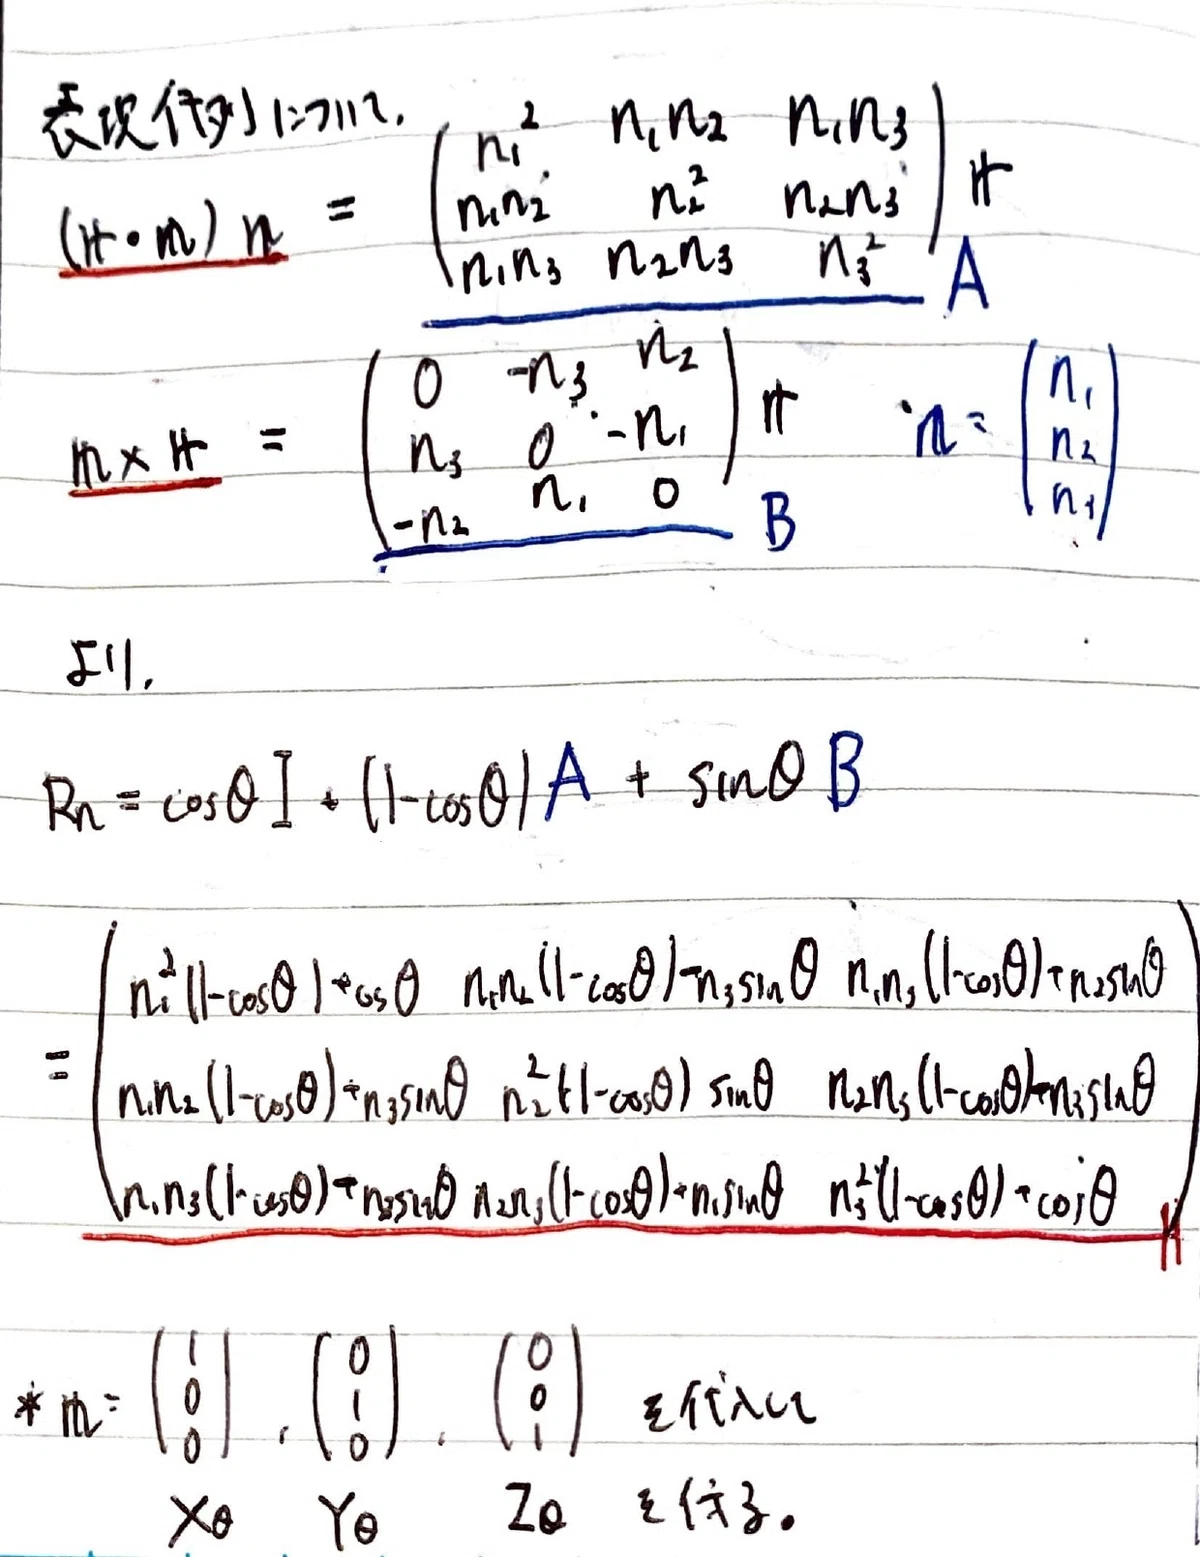 表現行列について,
(𝕣・𝕟) 𝕟 = ( n₁² n₁n₂ n₁n₃ / n₁n₂ n₂² n₂n₃ / n₁n₃ n₂n₃ n₃² ) 𝕣 A
𝕟 × 𝕣 = ( 0 -n₃ n₂ / n₃ 0 -n₁ / -n₂ n₁ 0 ) 𝕣 B 𝕟 = ( n₁ / n₂ / n₃ )
より,
Rn = cosθ I + (1-cosθ) A + sinθ B
= ( n₁²(1-cosθ)+cosθ n₁n₂(1-cosθ)-n₃sinθ n₁n₃(1-cosθ)+n₂sinθ
n₁n₂(1-cosθ)+n₃sinθ n₂²(1-cosθ) sinθ n₂n₃(1-cosθ) sinθ
n₁n₃(1-cosθ) sinθ n₂n₃(1-cosθ)+n₁sinθ n₃²(1-cosθ)+cosθ )
* 𝕟 = ( 1 / 0 / 0 ) , ( 0 / 1 / 0 ) , ( 0 / 0 / 1 ) を代入して
Xθ Yθ Zθ を得る。